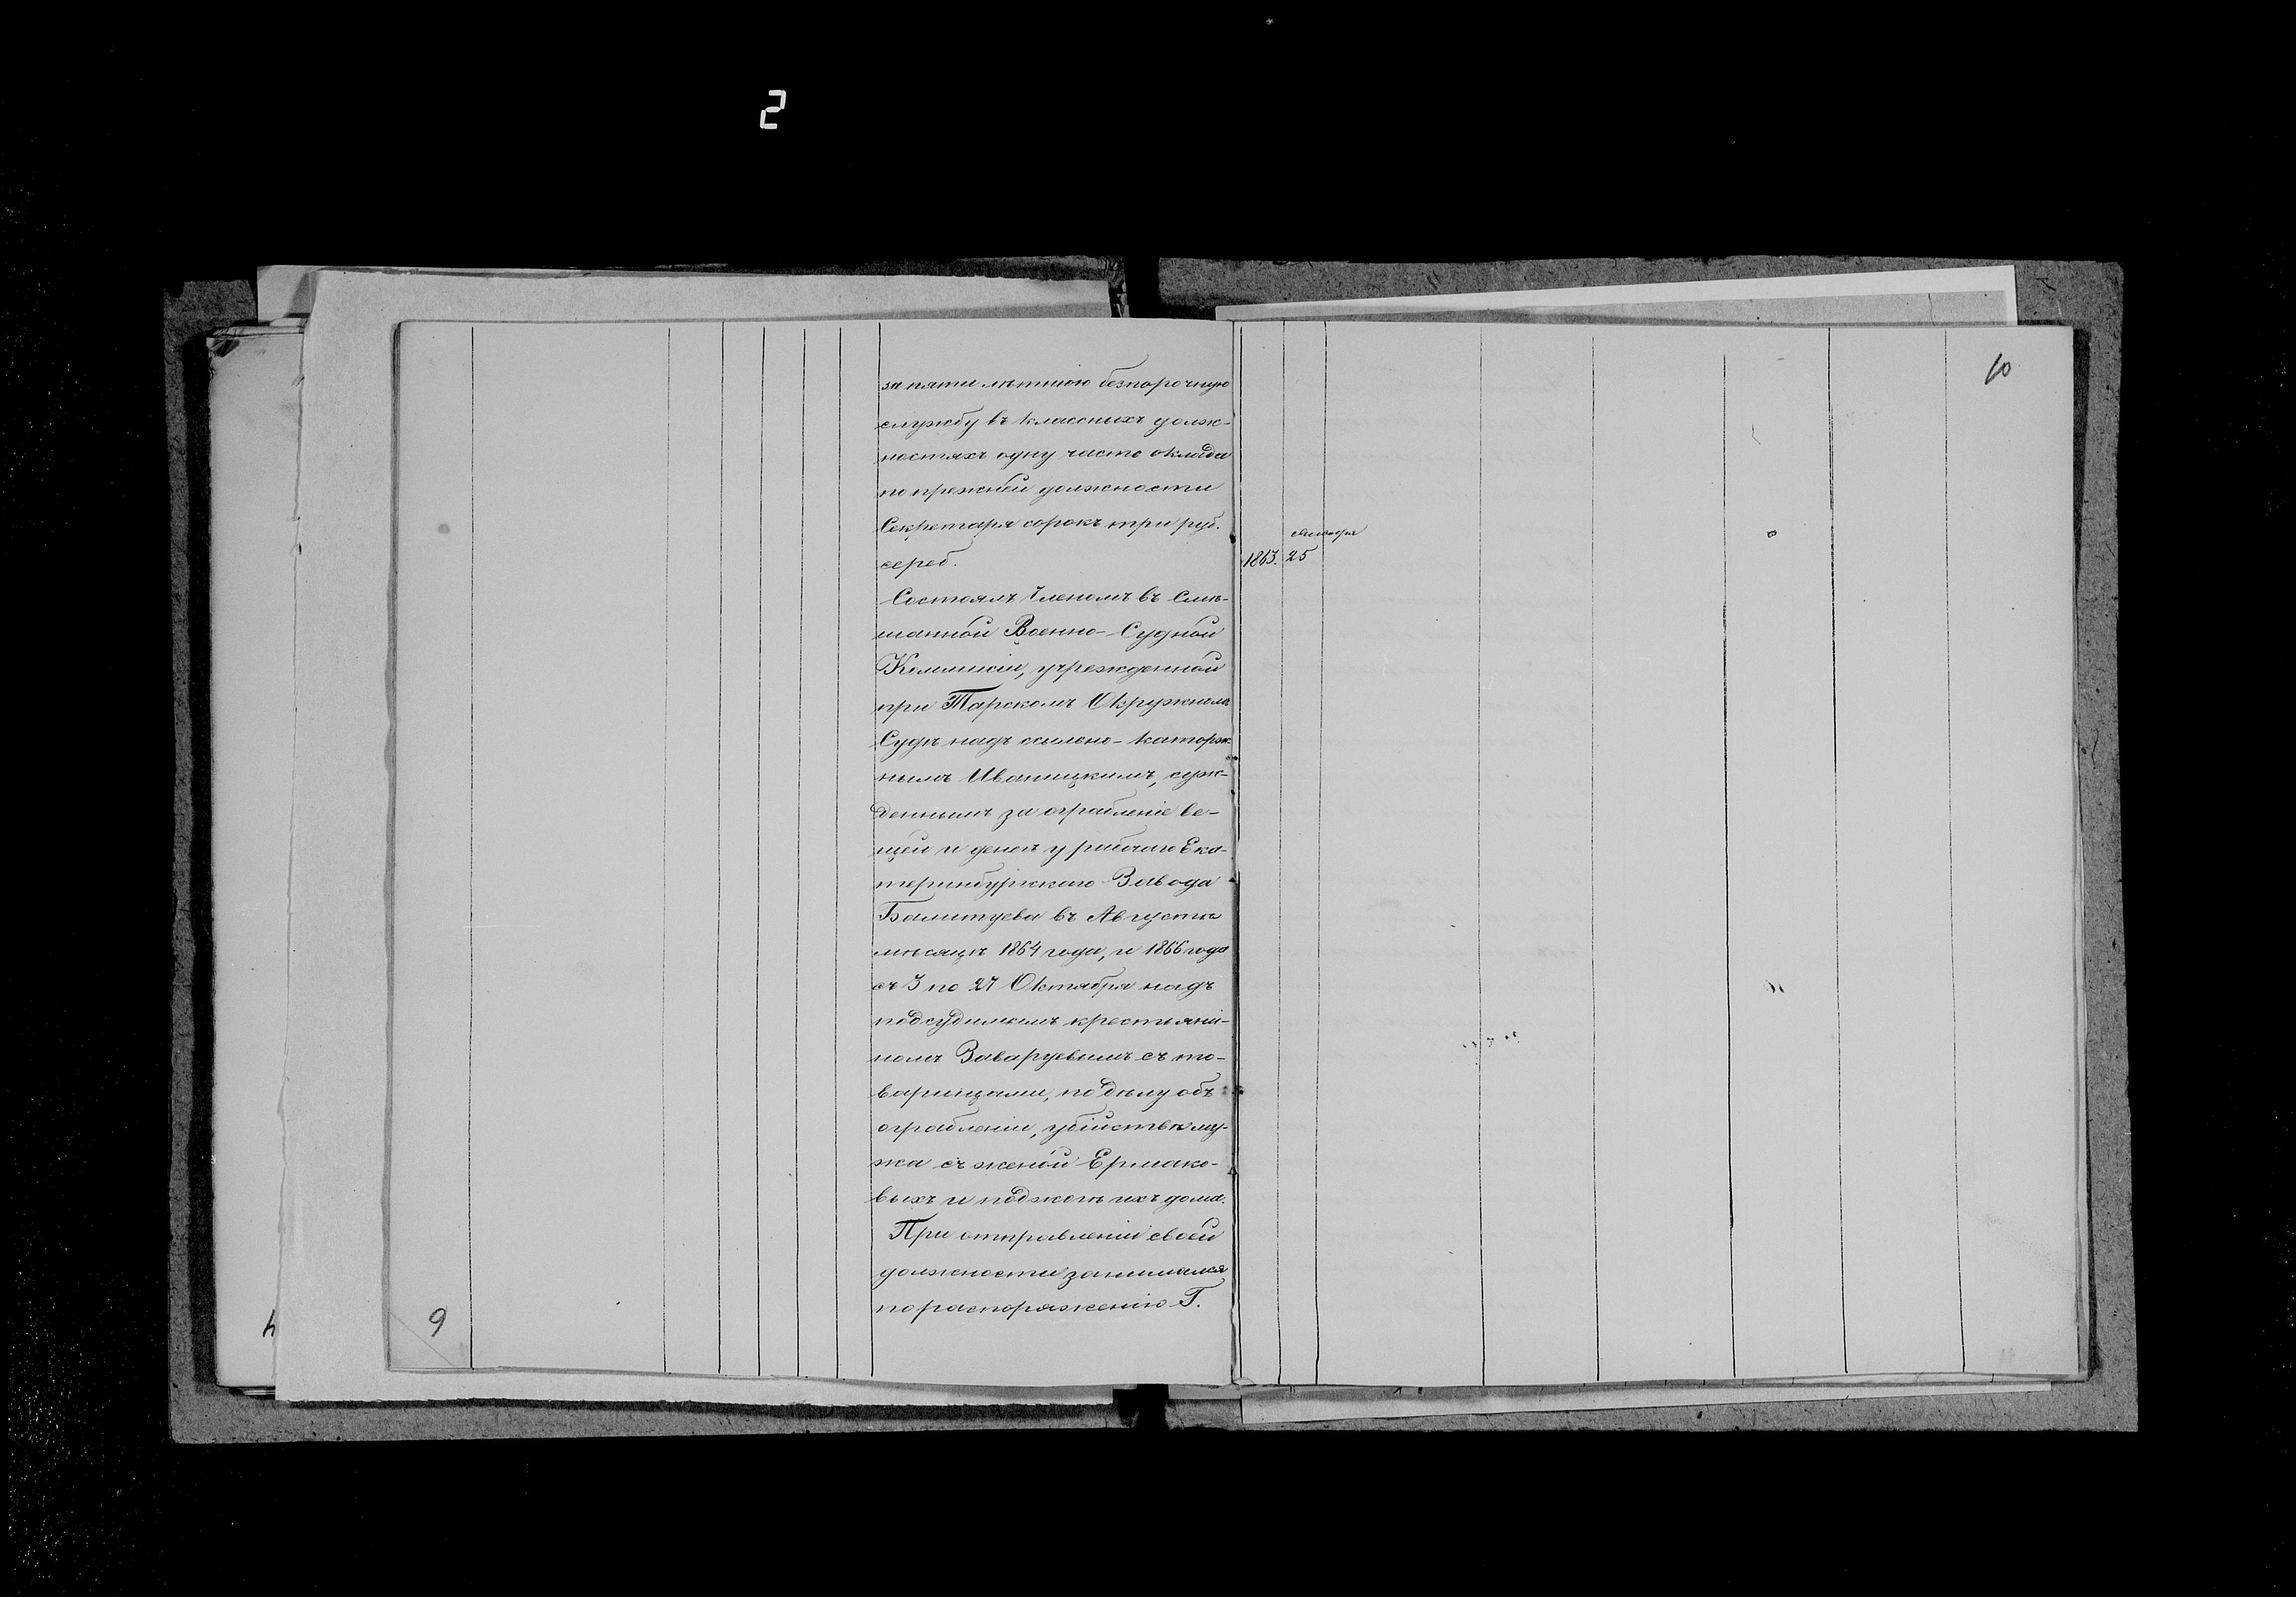 2
10
за пяти лѣтнюю безпорочную
службу въ классныхъ долж-
ностяхъ одну часть оклада
по прежней должности
Секретаря сорокъ три руб.
сереб.
1863. 25
Состоялъ Членомъ въ Смѣ-
шанной Военно-Судной
Коммисіи, учрежденной
при Тарскомъ Окружномъ
Судѣ надъ ссыльно-каторж-
нымъ Иваницкимъ, суж-
деннымъ за ограбленіе ве-
щей и денегъ у рабочаго Ека-
теринбургскаго Завода
въ Августѣ
мѣсяцѣ 1864 года, и 1866 года
съ 3 по 27 Октября надъ
подсудимымъ крестьяни-
номъ Заваруевымъ съ то-
варищами, по дѣлу объ
ограбленіи, убійствѣ му-
жа съ женой Ермако-
выхъ и поджогѣ ихъ дома.
При отправленіи своей
должности занимался
по распоряженію Г.
9